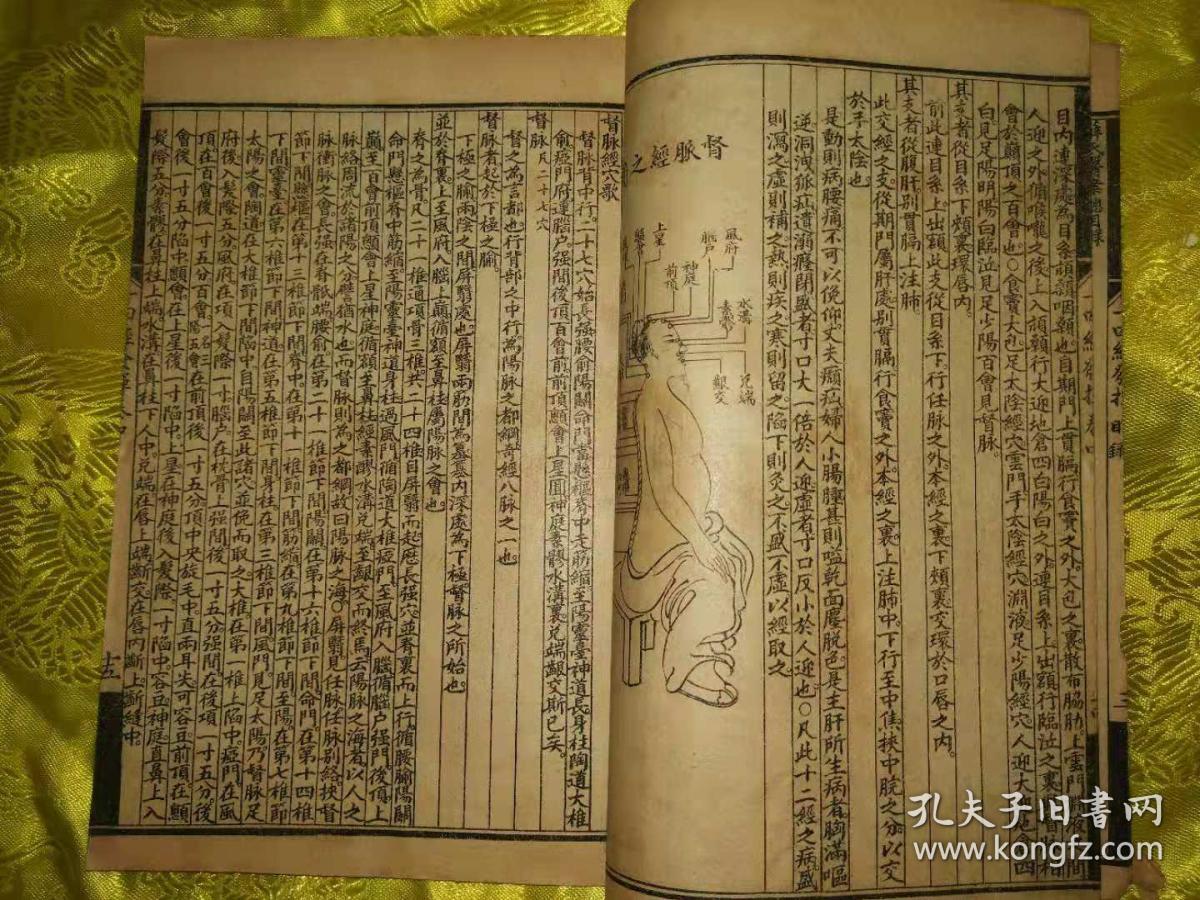 目內連深處為目系頏顙咽顙也自期門上貫膈行食竇之外大包之裏散布脇肋上雲門淵液之間
人迎之外循喉嚨之後上入頏顙行大迎地倉四白陽白之外連目系上出額行臨泣之裏與督脉相
會於巔頂之百會也〇食竇大包足太陰經穴雲門手太陰經穴淵液足少陽經穴人迎大迎地倉四
白見足陽明陽白臨泣見足少陽百會見督脉
其支者從目系下頰裏環唇內
前此連目系上出額此支從目系下行任脉之外本經之裏下頰裏交環於口唇之內
其支者從腹肝別貫膈上注肺
此交經之支從期門屬肝處別貫膈行食竇之外本經之裏上注肺中下行至中焦挾中脘之分以交
於手太陰也
是動則病腰痛不可以俛仰丈夫㿗疝婦人小腸腫甚則嗌乾面塵脫色是主肝所生病者胸滿嘔
逆洞洩狐疝遺溺癃閉盛者寸口大一倍於人迎虛者寸口反小於人迎也〇凡此十二經之病盛
則瀉之虛則補之熱則疾之寒則留之陷下則灸之不盛不虛以經取之
督脉經之
風府
腦戶
上星
神庭
前頂
水溝
素髎
兌端
齦交
督脉經穴歌
督脉背中行二十七穴始長强腰俞陽關命門當懸樞脊中走筋縮至陽靈臺神道長身柱陶道大椎
俞瘂門府連腦户强間後頂百會前前頂顖會上星圓神庭素髎水溝裏兌端齦交斯已矣
督脉凡二十七穴
督之為言都也行背部之中行為陽脉之都綱奇經八脉之一也
督脉者起於下極之腧
下極之腧兩陰之間屏翳處也屏翳兩肋間為篡篡內深處為下極督脉之所始也
並於脊裏上至風府入腦上巔循額至鼻柱屬陽脉之會也
脊之為骨凡二十一椎通項骨三椎共二十四椎自屏翳而起歷長强穴並脊裏而上行循腰腧陽關
命門懸樞脊中筋縮至陽靈臺神道身柱過風門循陶道大椎瘂門至風府入腦循腦户强間後頂上
巔至百會前頂顖會上星神庭循額至鼻柱經素髎水溝兌端至齦交而終焉云陽脉之海者以人之
脉絡周流於諸陽之分譬猶水也而督脉則為之都綱故曰陽脉之海〇屏翳見任脉任脉別絡挾督
脉衝脉之會長强在脊骶端腰俞在第二十一椎節下間陽關在第十六椎節下間命門在第十四椎
節下間懸樞在第十三椎節下間脊中在第十一椎節下間筋縮在第九椎節下間至陽在第七椎節
下間靈臺在第六椎節下間神道在第五椎節下間身柱在第三椎節下間風門見足太陽乃督脉足
太陽之會陶道在大椎節下間陷中自陽關至此諸穴並俛而取之大椎在第一椎上陷中瘂門在風
府後入髮際五分風府在項入髮際一寸腦户在枕骨上强間後一寸五分强間在後項一寸五分後
頂在百會後一寸五分百會一名三陽五會在前頂後一寸五分頂中央旋毛中直兩耳尖可容豆前頂在顖
會後一寸五分陷中顖會在上星後一寸陷中上星在神庭後入髮際一寸陷中容豆神庭直鼻上入
髮際五分素髎在鼻柱上端水溝在鼻柱下人中兌端在唇上端齦交在唇內齗上齗縫中
十五
孔夫子旧书网
www.kongfz.com